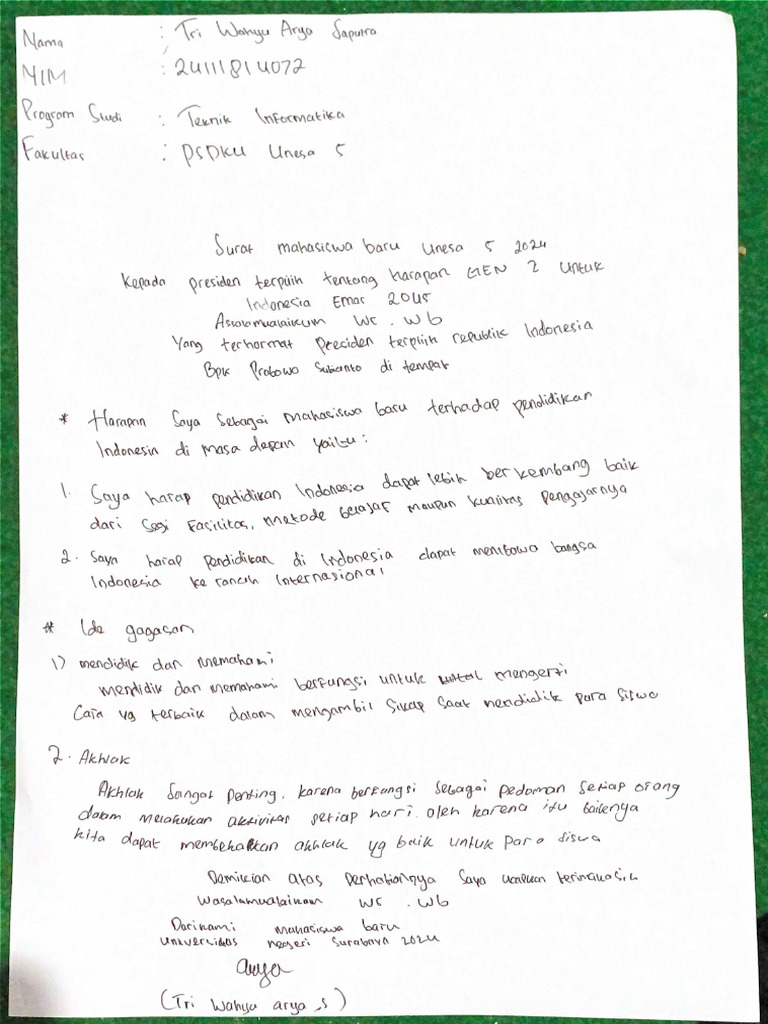 Nama : Tri Wahyu Arya Saputra
NIM : 24111814072
Program Studi : Teknik Informatika
Fakultas : PSDKU Unesa 5
Surat mahasiswa baru Unesa 5 2024
Kepada presiden terpilih tentang harapan GEN Z untuk
Indonesia Emas 2045
Assalamualaikum Wr. Wb
Yang terhormat Presiden terpilih republik Indonesia
Bpk Prabowo Subianto di tempat
* Harapan Saya sebagai mahasiswa baru terhadap pendidikan
Indonesia di masa depan yaitu:
1. Saya harap pendidikan Indonesia dapat lebih berkembang baik
dari Segi Fasilitas, metode belajar maupun kualitas Pengajarnya
2. Saya harap pendidikan di Indonesia dapat membawa bangsa
Indonesia ke rancah Internasional
* Ide gagasan
1) mendidik dan memahami
mendidik dan memahami berfungsi untuk mengerti
Cara yg terbaik dalam mengambil sikap saat mendidik para siswa
2. Akhlak
Akhlak Sangat Penting. karena berfungsi sebagai pedoman setiap orang
dalam melakukan aktivitas setiap hari. oleh karena itu baiknya
kita dapat membekalkan akhlak yg baik untuk para siswa
Demikian atas perhatiannya saya ucapkan terimakasih
Wasalamualaikum Wr. Wb
Dari kami mahasiswa baru
Universitas negeri Surabaya 2024
arya
(Tri Wahyu arya .s)